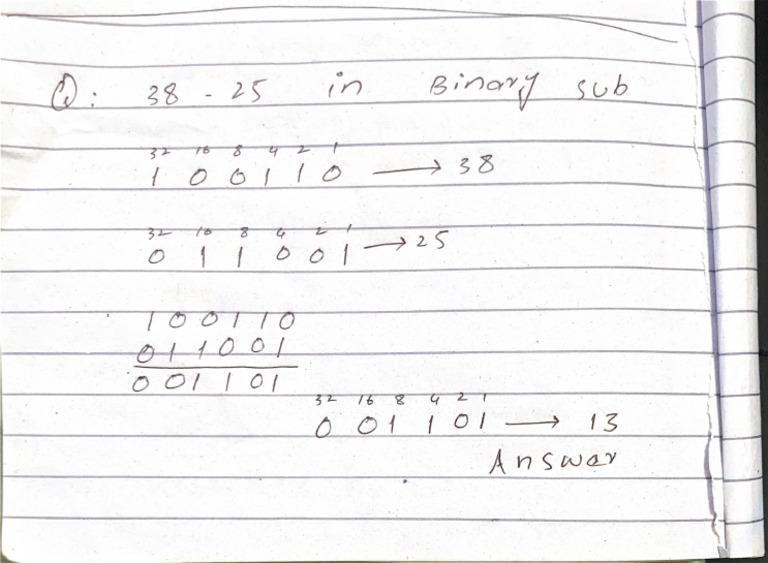 Q: 38 - 25 in Binary sub
32 16 8 4 2 1
1 0 0 1 1 0 → 38
32 16 8 4 2 1
0 1 1 0 0 1 → 25
1 0 0 1 1 0
0 1 1 0 0 1
0 0 1 1 0 1
32 16 8 4 2 1
0 0 1 1 0 1 → 13
Answar